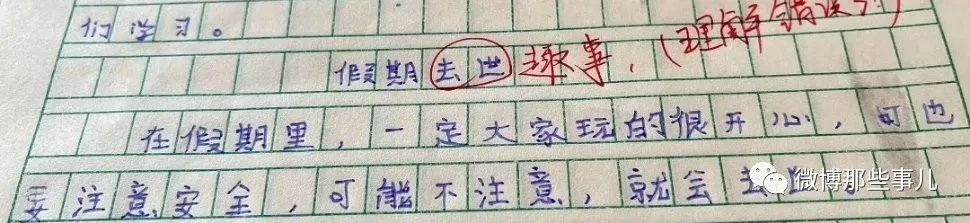 们学习。
假期去世趣事,(理解错误!)
在假期里,一定大家玩的很开心,可也
要注意安全,可能不注意,就会去
微博那些事儿